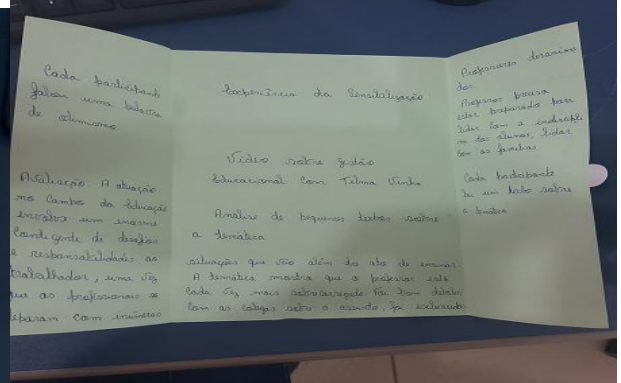 Cada participante
falou uma palavra
de otimismo
Avaliação: A atuação
no Campo da Educação
envolve um enorme
Contigente de desafios
e responsabilidades ao
trabalhador, uma vez
que os profissionais se
deparam com inúmeras
Experiência da Sensibilização
Vídeo sobre gestão
Educacional com Telma Vinha
Análise de pequenos textos sobre
a temática
situações que vão além do ato de ensinar.
A temática mostra que o professor está
Cada vez mais sobrecarregado. Foi bom debater
Com as colegas sobre o assunto, foi
Professores desanima
dos
Professor precisa
estar preparado para
lidar com a indiscipli
na dos alunos, lidar
com as famílias
Cada participante
leu um texto sobre
a temática